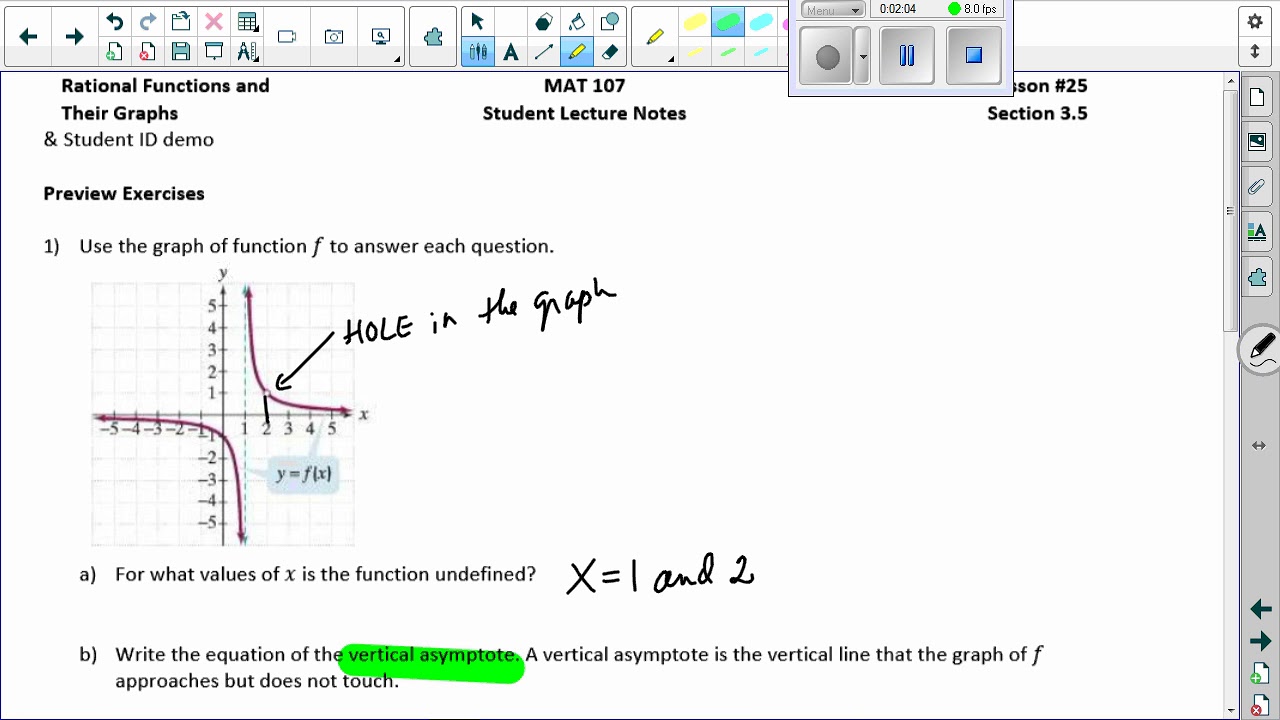 Menu
0:02:04
8.0 fps
A
A
Rational Functions and
MAT 107
sson #25
Their Graphs
Student Lecture Notes
Section 3.5
& Student ID demo
Preview Exercises
1) Use the graph of function f to answer each question.
y
5
4
3
2
1
HOLE in the graph
x
-5 -4 -3 -2 -1 1 2 3 4 5
-1
-2
-3
-4
-5
y = f(x)
a) For what values of x is the function undefined? X=1 and 2
b) Write the equation of the vertical asymptote. A vertical asymptote is the vertical line that the graph of f
approaches but does not touch.